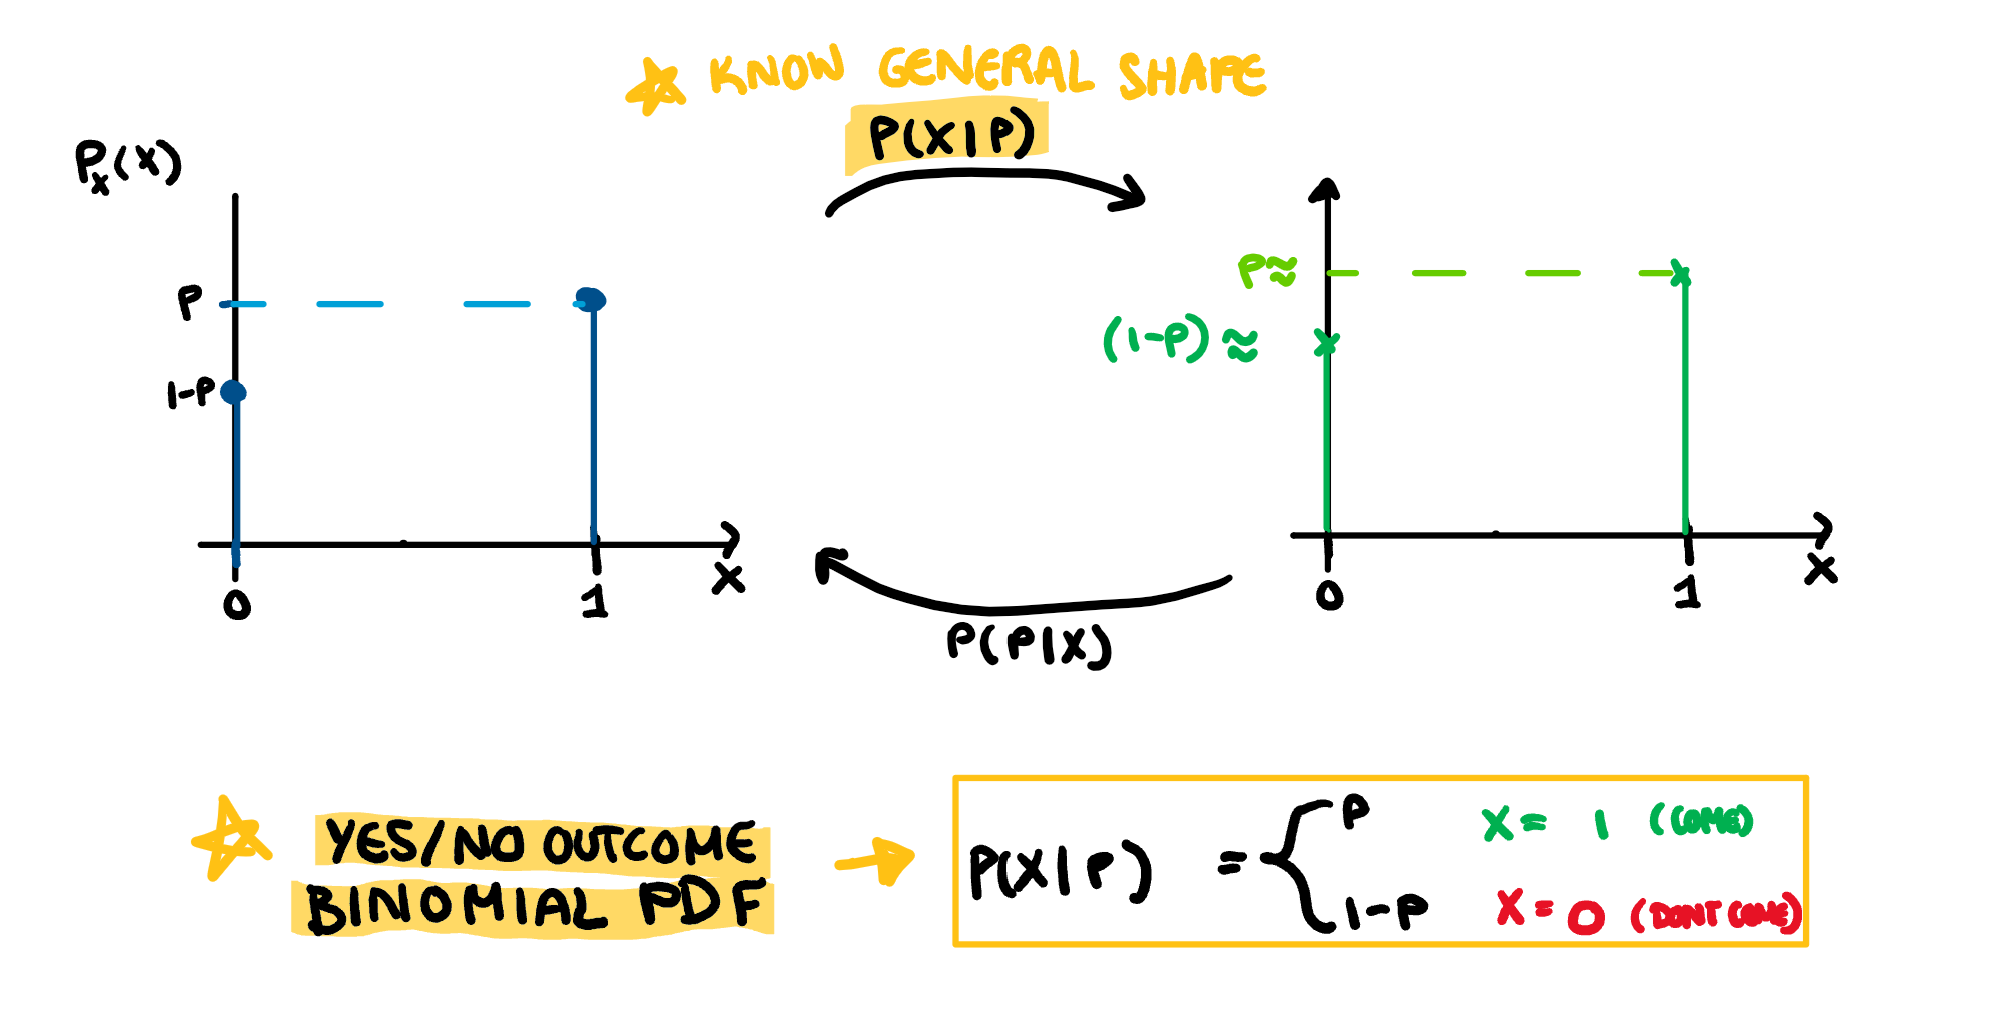 KNOW GENERAL SHAPE
P(X|P)
Px(X)
P
1-P
0
1
X
P≈
(1-P)≈
0
1
X
P(P|X)
YES/NO OUTCOME
BINOMIAL PDF
P(X|P) = { P X = 1 (COME)
1-P X = 0 (DONT COME)